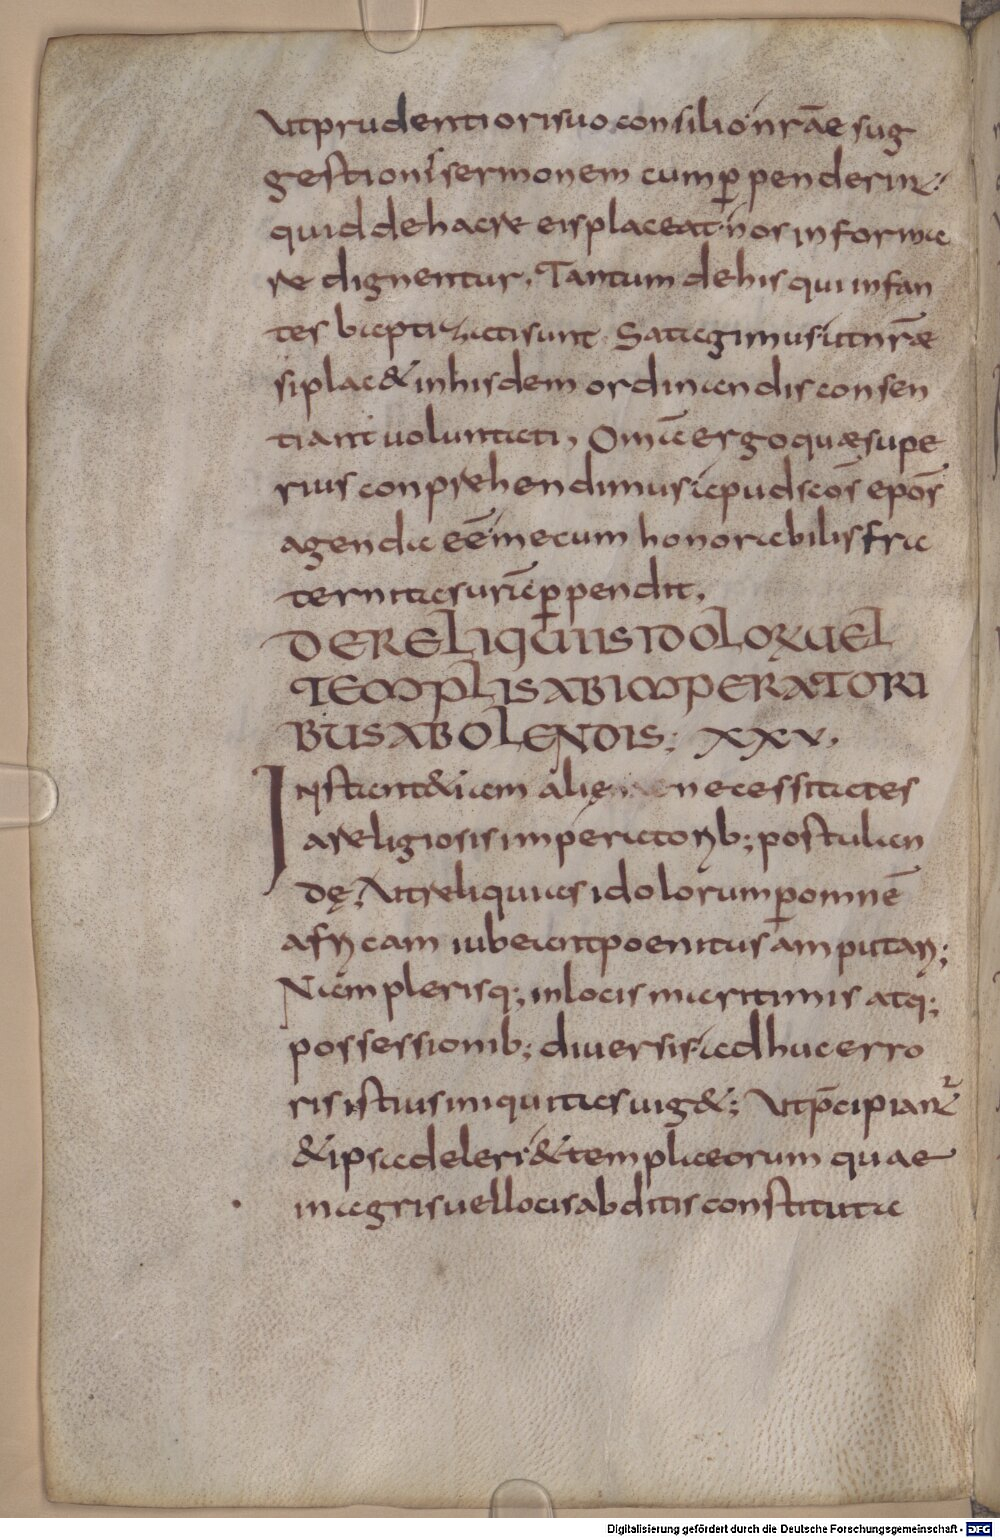 Ut prudentiori suo consilio nr̄ae sug
gestionis sermonem cum p̱penderint.
quid de hac re eis placeat nos informa
re dignentur. Tantum de his qui infan
tes baptizati sunt. Satagimus ut nr̄ae
si plac& in hisdem ordinandis consen
tiant voluntati, Om̄a ergo quæ supe
rius conprehendimus apud scōs epōs
agenda eē mecum honorabilis fra
ternitas ur̄a p̱pendit,
DE RELIQUIIS IDOLOꝜ UEL
TEMPLIS AB IMPERATORI
BUS ABOLENDIS; XXXV.
Instant &iam aliae necessitates
a religiosis imperatorib; postulan
dę, Ut reliquias idolorum p̱ omnē
afrꝫcam iubeant poenitus amputarꝫ;
Nam plerisq; in locis maritimis atq;
possessionib; diuersis adhuc erro
ris istius iniquitas uig&; Ut p̄cipiant̉
& ipsa deleri & templa eorum quae
in agris uel locis abditis constituta
Digitalisierung gefördert durch die Deutsche Forschungsgemeinschaft - DFG